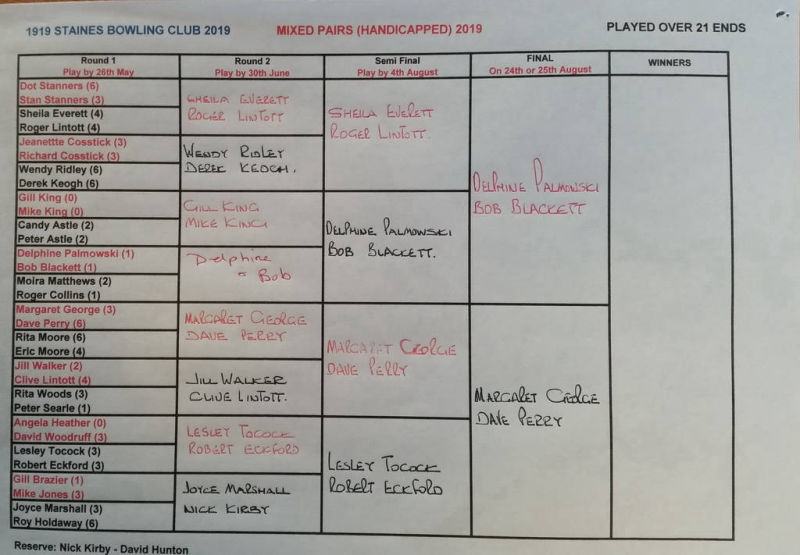 1919 STAINES BOWLING CLUB 2019 MIXED PAIRS (HANDICAPPED) 2019 PLAYED OVER 21 ENDS
Round 1
Play by 26th May
Round 2
Play by 30th June
Semi Final
Play by 4th August
FINAL
On 24th or 25th August
WINNERS
Dot Stanners (6)
Stan Stanners (3)
Sheila Everett (4)
Roger Lintott (4)
Jeanettte Cosstick (3)
Richard Cosstick (3)
Wendy Ridley (6)
Derek Keogh (6)
Gill King (0)
Mike King (0)
Candy Astle (2)
Peter Astle (2)
Delphine Palmowski (1)
Bob Blackett (1)
Moira Matthews (2)
Roger Collins (1)
Margaret George (3)
Dave Perry (6)
Rita Moore (6)
Eric Moore (4)
Jill Walker (2)
Clive Lintott (4)
Rita Woods (3)
Peter Searle (1)
Angela Heather (0)
David Woodruff (3)
Lesley Tocock (3)
Robert Eckford (3)
Gill Brazier (1)
Mike Jones (3)
Joyce Marshall (3)
Roy Holdaway (6)
SHEILA EVERETT
ROGER LINTOTT
WENDY RIDLEY
DEREK KEOGH.
GILL KING
MIKE KING
Delphine
& Bob
MARGARET GEORGE
DAVE PERRY
JILL WALKER
CLIVE LINTOTT.
LESLEY TOCOCK
ROBERT ECKFORD
JOYCE MARSHALL
NICK KIRBY
SHEILA EVERETT
ROGER LINTOTT.
DELPHINE PALMOWSKI
BOB BLACKETT.
MARGARET GEORGE
DAVE PERRY
LESLEY TOCOCK
ROBERT ECKFORD
DELPHINE PALMOWSKI
BOB BLACKETT
MARGARET GEORGE
DAVE PERRY
Reserve: Nick Kirby - David Hunton